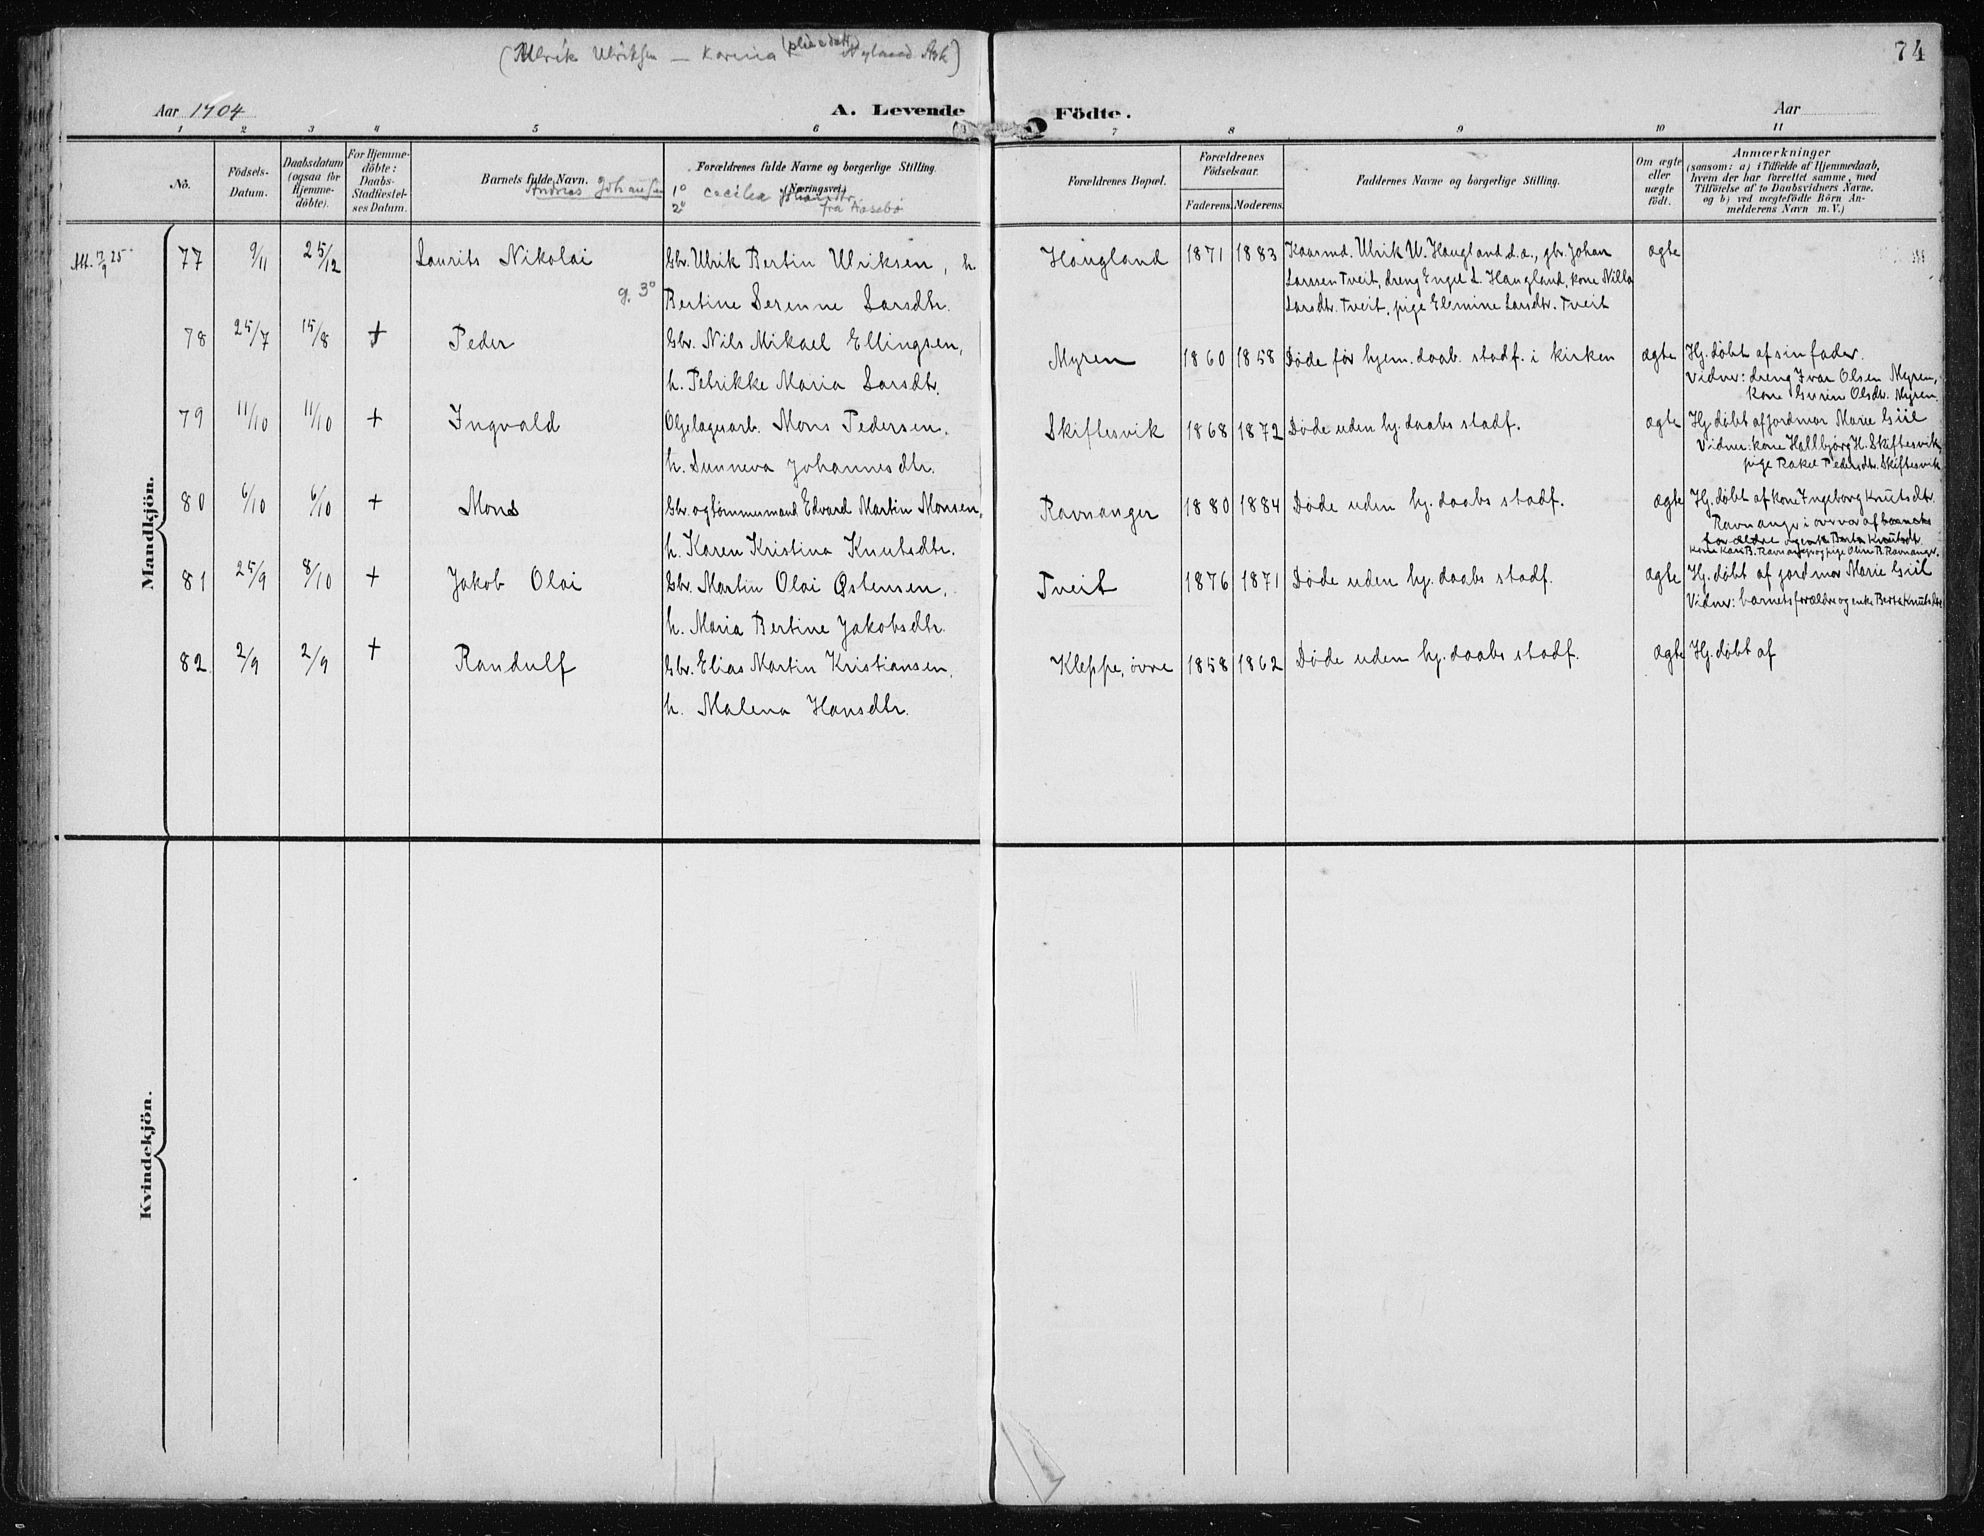 (Ulrik Ulriksen — Karina (pleiedatt) Nyland Ask)
74
Aar 1904
A. Levende
Födte.
Aar
1 2 3 4 5 6 7 8 9 10 11
No.
Födsels-Datum.
Daabsdatum (ogsaa for Hjemmedöbte).
For Hjemmedöbte: Daabs-Stadfæstelses Datum.
Barnets fulde Navn.
Andreas Johansen
Forældrenes fulde Navne og borgerlige Stilling. (Næringsvei)
1° Cecilia Johansdtr.
2° fra Aasebø
Forældrenes Bopæl.
Forældrenes Födselsaar.
Faderens. Moderens.
Faddernes Navne og borgerlige Stilling.
Om ægte eller uægte födt.
Anmærkninger
(saasom: a) i Tilfælde af Hjemmedaab, hvem der har forrettet samme, med Tilföielse af to Daabsvidners Navne. og b) ved uægtefödte Börn Anmelderens Navn m. V.)
Mandkjön.
Att. 17/9 25
77 9/11 25/12 Laurits Nikolai Gbr. Ulrik Bertin Ulriksen, h. Haugland 1871 1883 Kaarmd. Ulrik U. Haugland d.a., gbr. Johan ægte
g. 3° Bertine Serenne Larsdtr. Larssen Tveit, dreng Engel L. Haugland, kone Nilla
Larsdtr. Tveit, pige Elemine Larsdtr. Tveit
78 25/7 15/8 + Peder Gbr. Nils Mikael Ellingsen, Myren 1860 1858 Døde før hjem. daab. stadf. i kirken ægte Hj. døbt af sin fader.
h. Petrikke Maria Larsdtr. Vidner: dreng Ivar Olsen Myren,
kone Gurin Olsdtr. Myren.
79 11/10 11/10 + Ingvald Oljelagerarb. Mons Pedersen. Skiftesvik 1868 1872 Døde uden hj. daabs stadf. ægte Hj. døbt af jordmor Marie Giil
h. Sunneva Johannesdtr. Vidner: kone Hallbjørg H. Skiftesvik,
pige Rakel Pedersdtr. Skiftesvik
80 6/10 6/10 + Mons Gbr. og tømmermand Edvard Martin Monsen, Ravnanger 1880 1884 Døde uden hj. daabs stadf. ægte Hj. døbt af kone Ingeborg Knutsdtr.
h. Karen Kristina Knutsdtr. Ravnanger i overvær af barnets
forældre og enke Berta Knutsdtr.
kone Kari B. Ravnanger og pige Olin B. Ravnanger.
81 25/9 8/10 + Jakob Olai Gbr. Martin Olai Østensen. Tveit 1876 1871 Døde uden hj. daabs stadf. ægte Hj. døbt af jordmor Marie Giil
h. Maria Bertine Jakobsdtr. Vidner: barnets forældre og enke Berta Knutsdtr
82 2/9 2/9 + Randulf Gbr. Elias Martin Kristiansen. Kleppe, øvre 1858 1862 Døde uden hj. daabs stadf. ægte Hj. døbt af
h. Malena Hansdtr.
Kvindekjön.